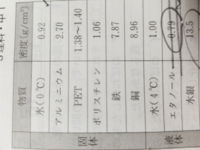 物質 密度(g/cm³)
固体
氷(0℃) 0.92
アルミニウム 2.70
PET 1.38~1.40
ポリスチレン 1.06
鉄 7.87
銅 8.96
液体
水(4℃) 1.00
エタノール 0.79
水銀 13.5